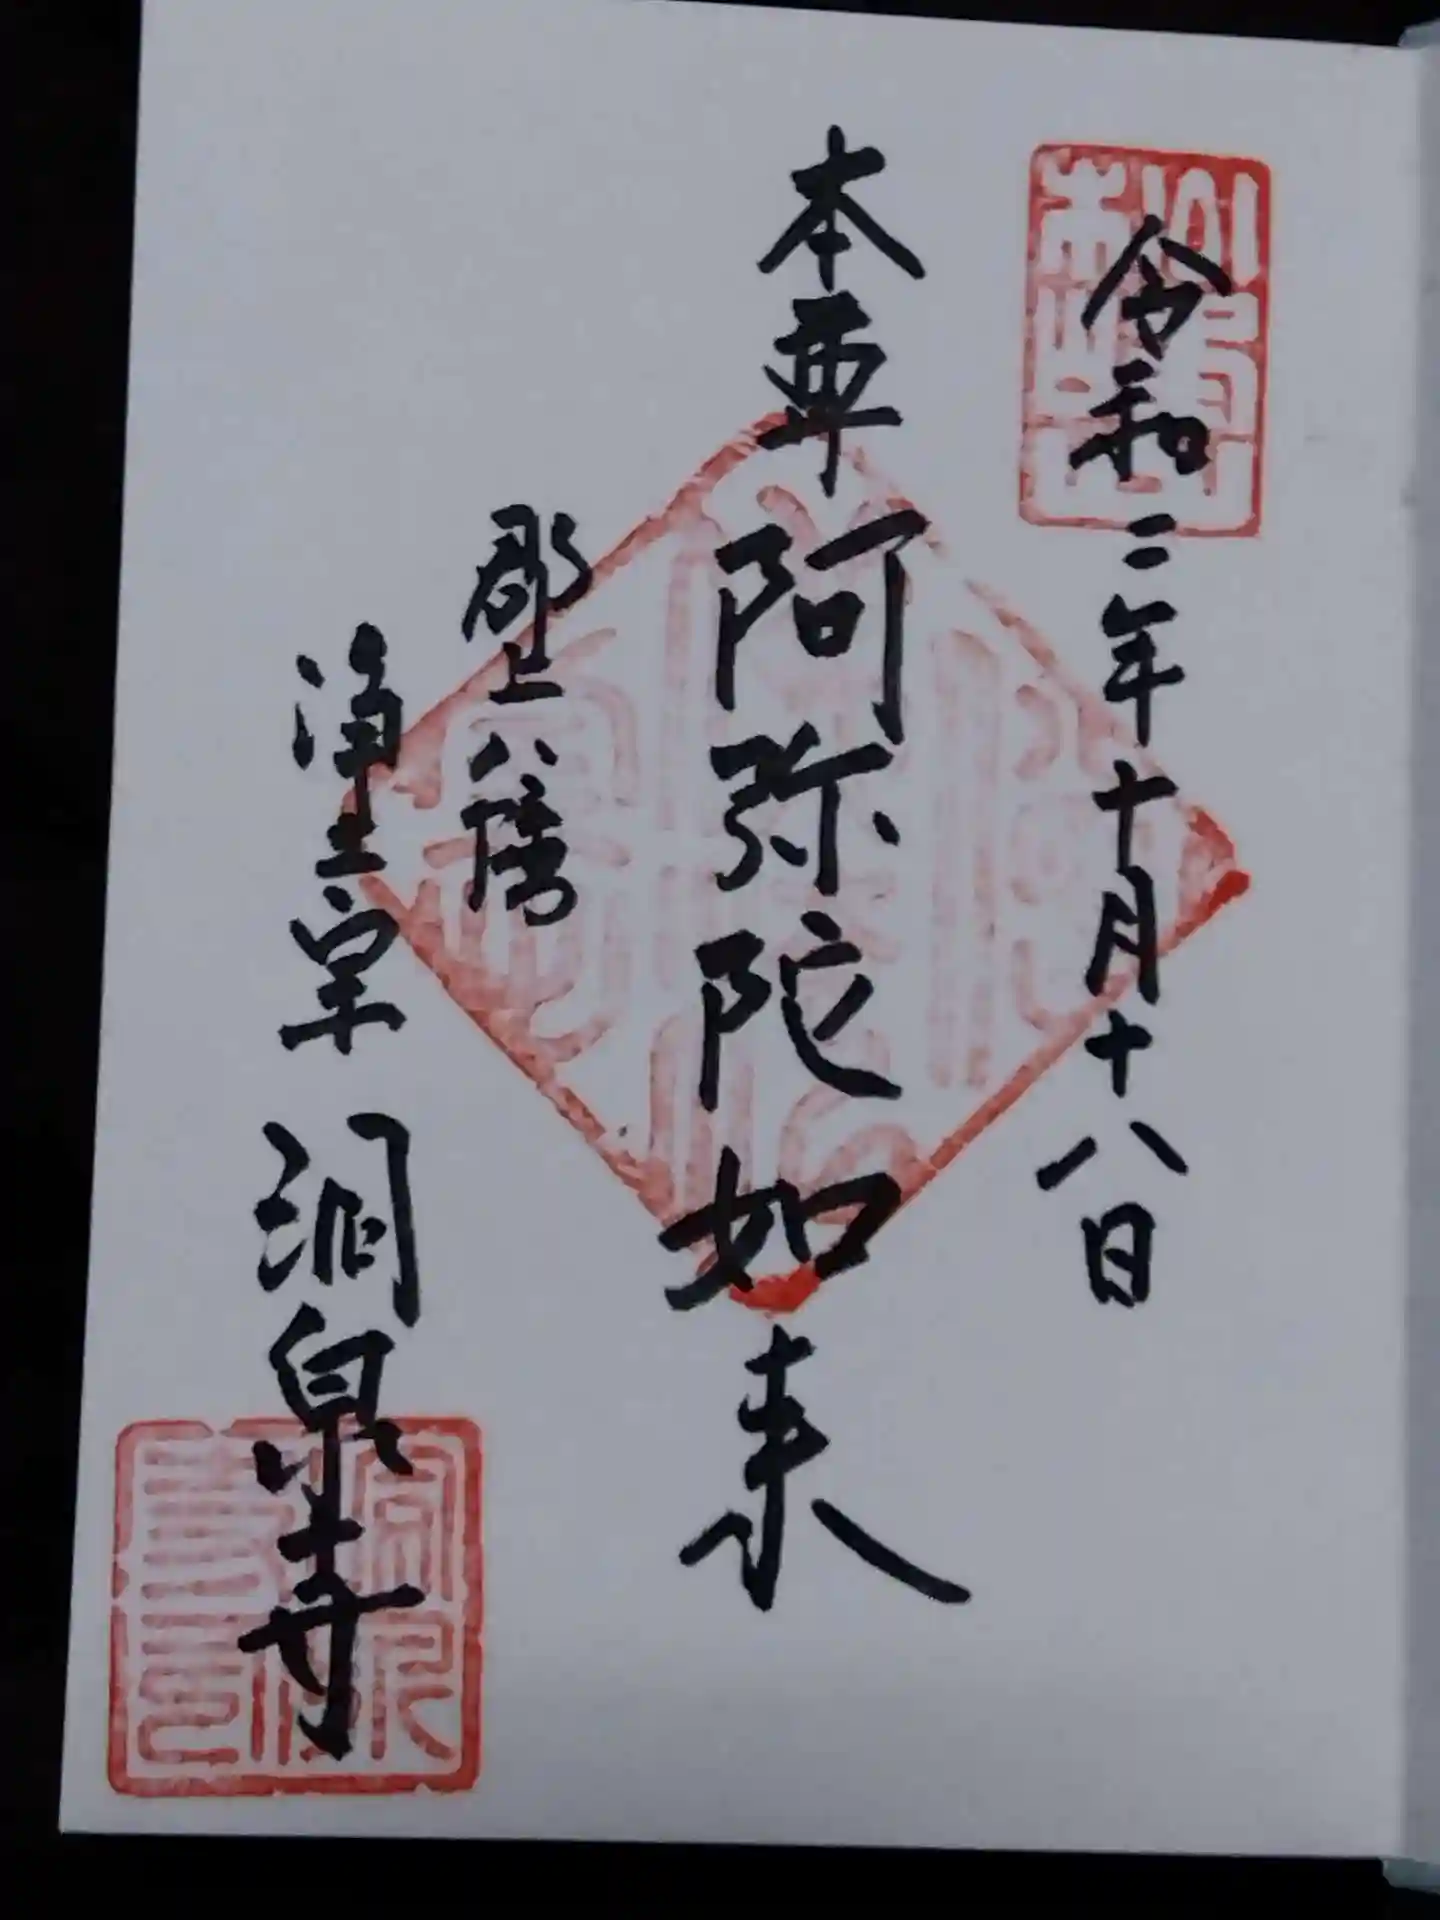 令和二年十月十八日
本尊 阿弥陀如来
郡上八幡
浄土宗 洞泉寺